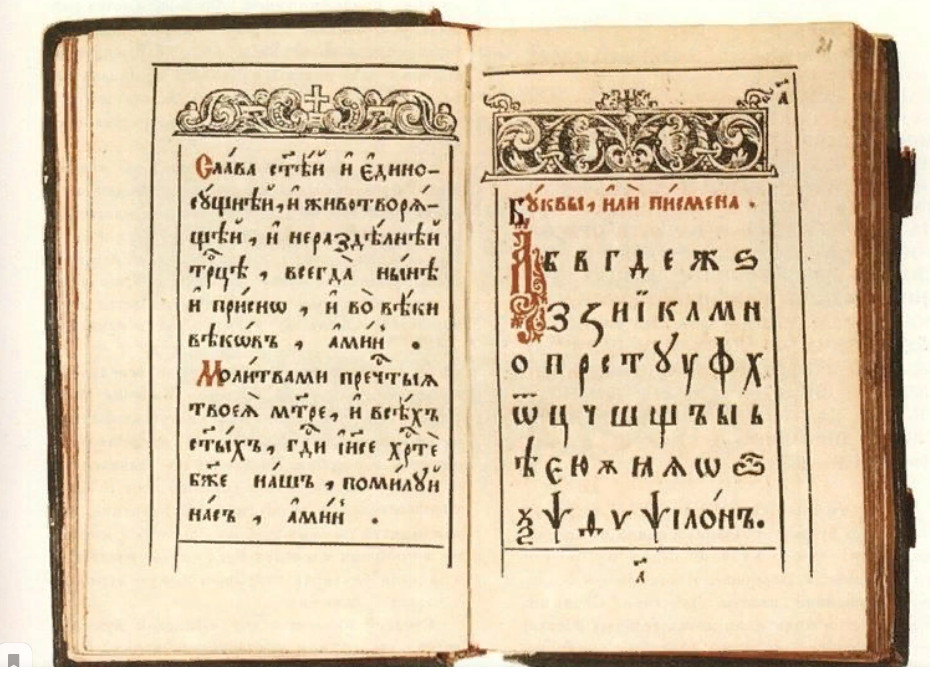 Сла́ва ст҃ѣ́й и҆ є҆дино-
сꙋ́щнѣй, и҆ животворѧ́-
щѣй, и҆ нераздѣ́лнѣй
трⷪ҇цѣ, всегда̀ ны́нѣ
и҆ при́снѡ, и҆ во̀ вѣ́ки
вѣкѡ́въ, а҆ми́нь.
Моли́твами пречⷭ҇тыѧ
твоеѧ̀ мт҃ре, и҆ всѣ́хъ
ст҃ы́хъ, гдⷭ҇и і҆и҃се хрⷭ҇тѐ
бж҃е на́шъ, поми́лꙋй
на́съ, а҆ми́нь.
21
а҃
Бꙋ́квы, и҆лѝ пи́смена.
А б в г д е ж ѕ
З ꙁ и ї к л м н
о п р с т ꙋ у ф х
ѿ ц ч ш щ ъ ы ь
ѣ є ю ѫ ꙗ ѧ ѡ
ѯ ѱ ѳ ѵ ѱїло́нъ.
а҃